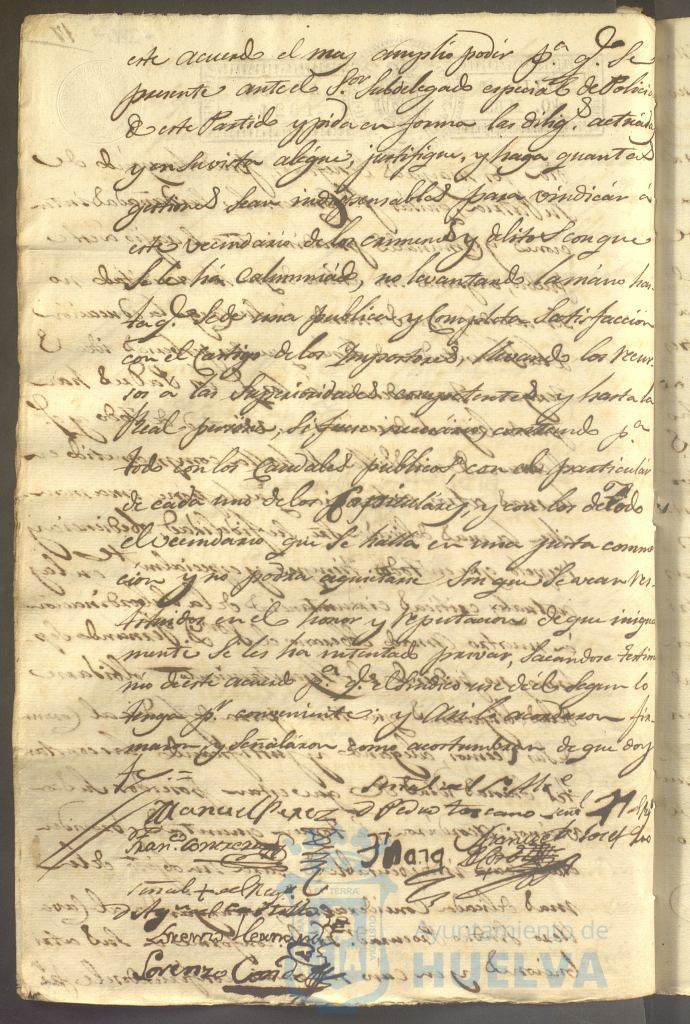 este acuerdo el mas amplio poder p.a q.e se
presente ante el S.or Subdelegado especial de Policia
de este Partido y pida en forma las dilig.s actuadas
y en su vista alegue, justifique, y haga quantas
gestiones sean indispensables para vindicar á
este vecindario de los crimenes y delitos con que
se le ha calumniado, no levantando la mano has
ta q.e se de una publica y completa satisfaccion
con el castigo de los Impostores, llevando los recur
sos a las Superioridades competentes y hasta la
Real persona, si fuere necesario, contando p.a
todo con los Caudales publicos, con el particular
de cada uno de los Capitulares, y con los de todo
el vecindario que se halla en una justa conmo
cion y no podra aquietarse sin que se vean res
tituidos en el honor y reputacion de que iniqua
mente se les ha intentado privar, sacandose testimo
nio de este acuerdo p.a q.e el Sindico use de él segun lo
tenga p.r conveniente; y asi lo acordaron fir
maron y señalaron como acostumbran de que doy
fe =
Señal del
Manuel Perez D Pedro Toscano
Fran.co Gonzalez
Señal + de
Lorenzo Hernand
Lorenzo Conde
Ayuntamiento de
HUELVA